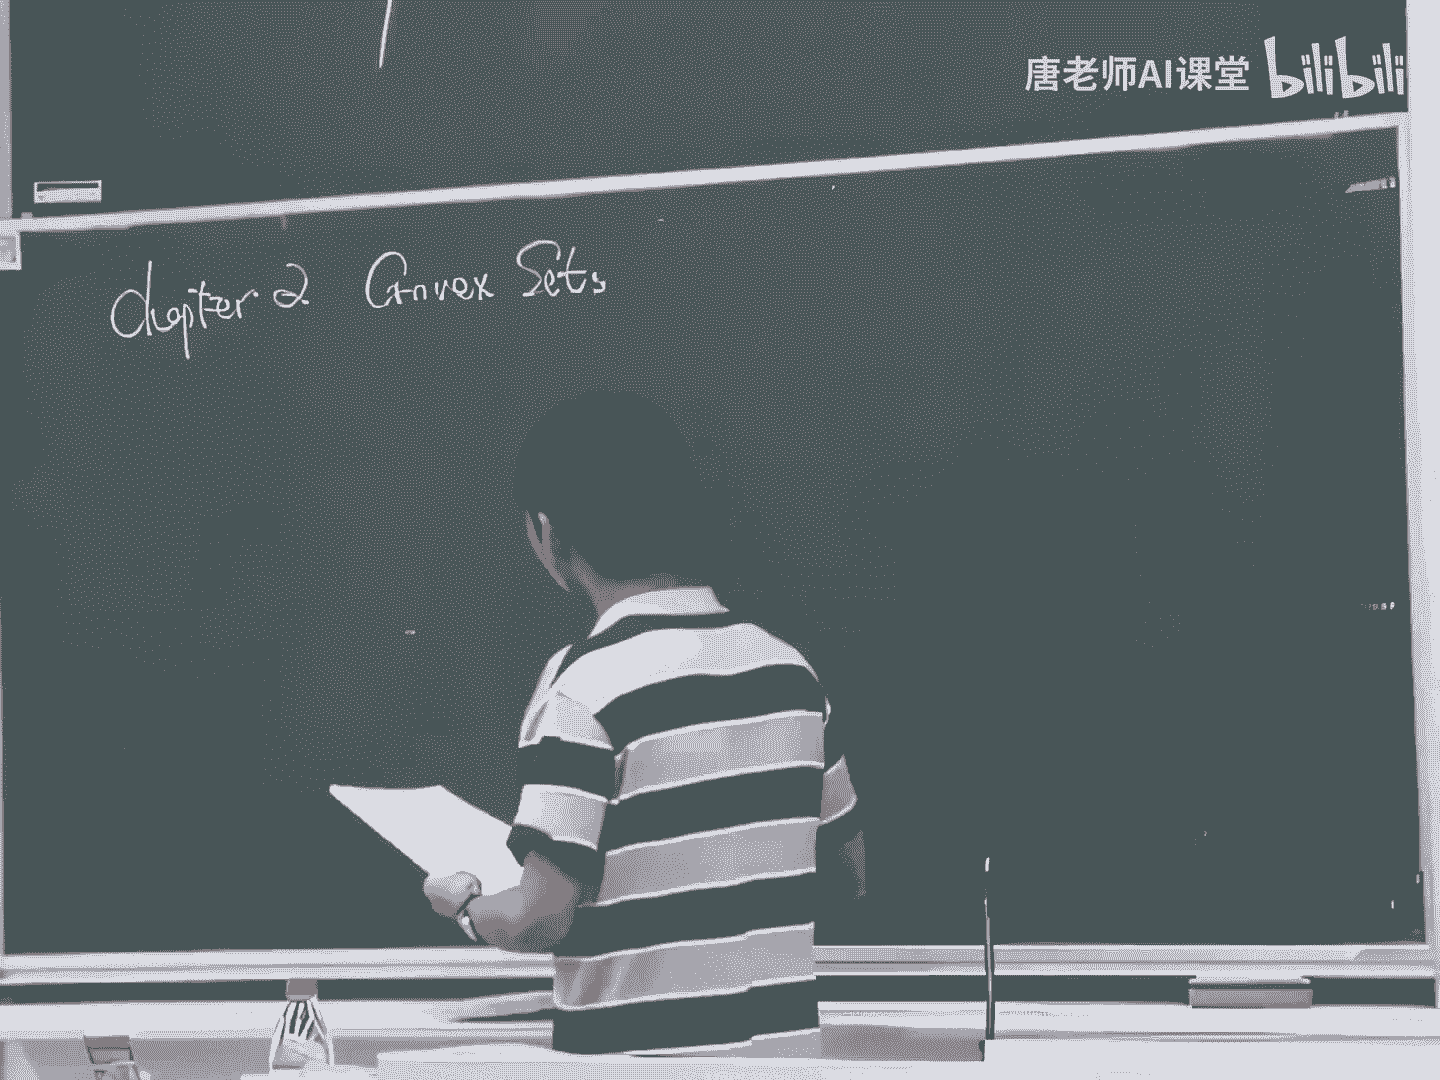 唐老师AI课堂 bilibili
Chapter 2 Convex Sets